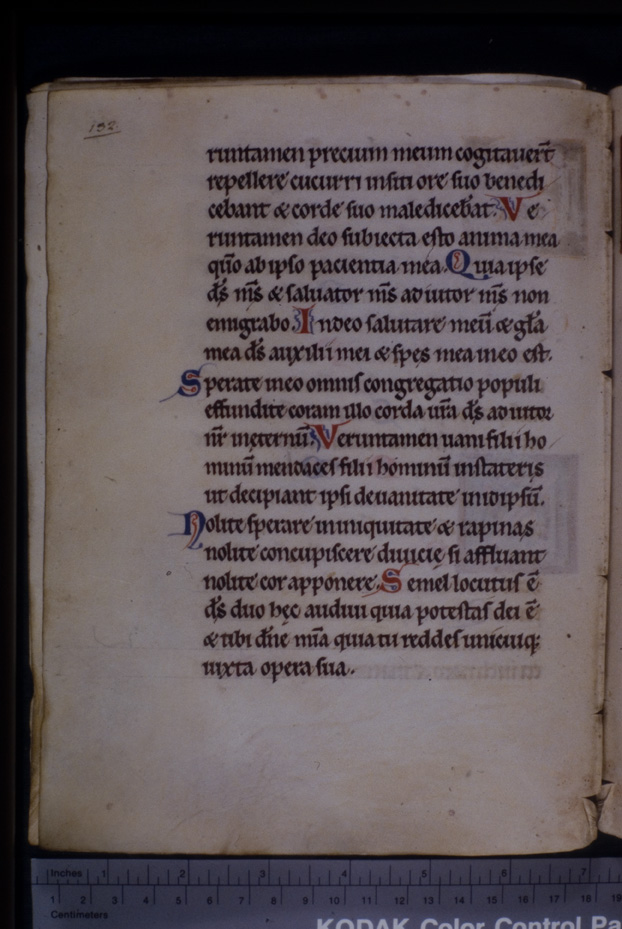 132.
runtamen precium meum cogitauer̄t
repellere cucurri insiti ore suo benedi
cebant & corde suo maledicebāt. Ve
runtamen deo subiecta esto anima mea
qm̄o ab ipso pacientia mea. Quia ipse
ds̄ ms̄ & saluator ms̄ adiutor ms̄ non
emigrabo. In deo salutare meū & gl̄a
mea ds̄ auxilii mei & spes mea in eo est.
Sperate in eo omnis congregatio populi
effundite coram illo corda ur̄a ds̄ adiutor
nr̄ in eternū. Veruntamen uani filii ho
minū mendaces filii hominū in stateris
ut decipiant ipsi de uanitate in idipsū.
Nolite sperare in iniquitate & rapinas
nolite concupiscere diuicie si affluant
nolite cor apponere. Semel locutus ē
ds̄ duo hęc audiui quia potestas dei ē
& tibi dn̄e mīa quia tu reddes unicuiq;
iuxta opera sua.
Inches 1 2 3 4 5 6 7
1 2 3 4 5 6 7 8 9 10 11 12 13 14 15 16 17 18 19
Centimeters
KODAK Color Control Pa